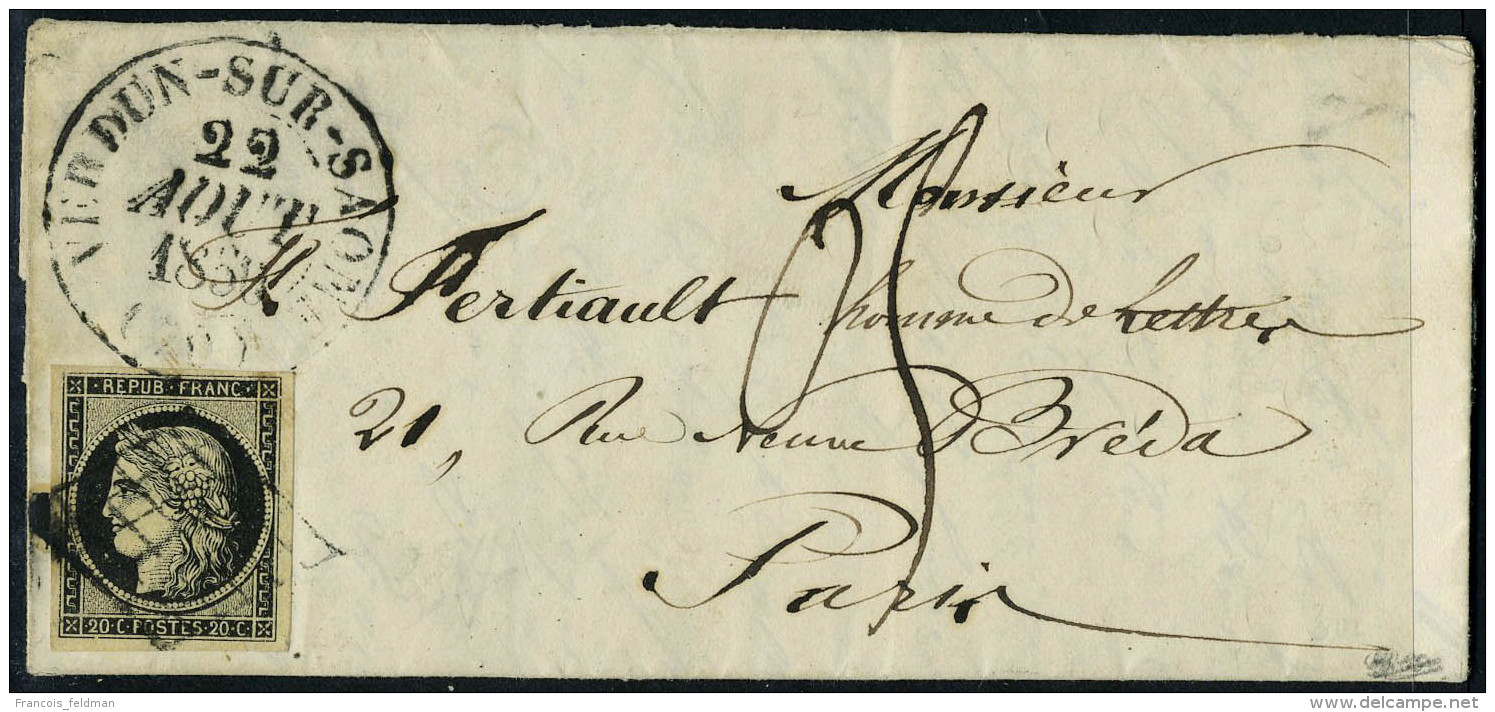 VERDUN-SUR-SAONE
22
AOUT
1850
Monsieur
H. Fertiault homme de Lettres
21, Rue Neuve Bréda
Paris
REPUB·FRANC·
20·C·POSTES·20·C·
Francois_feldman
www.delcampe.net